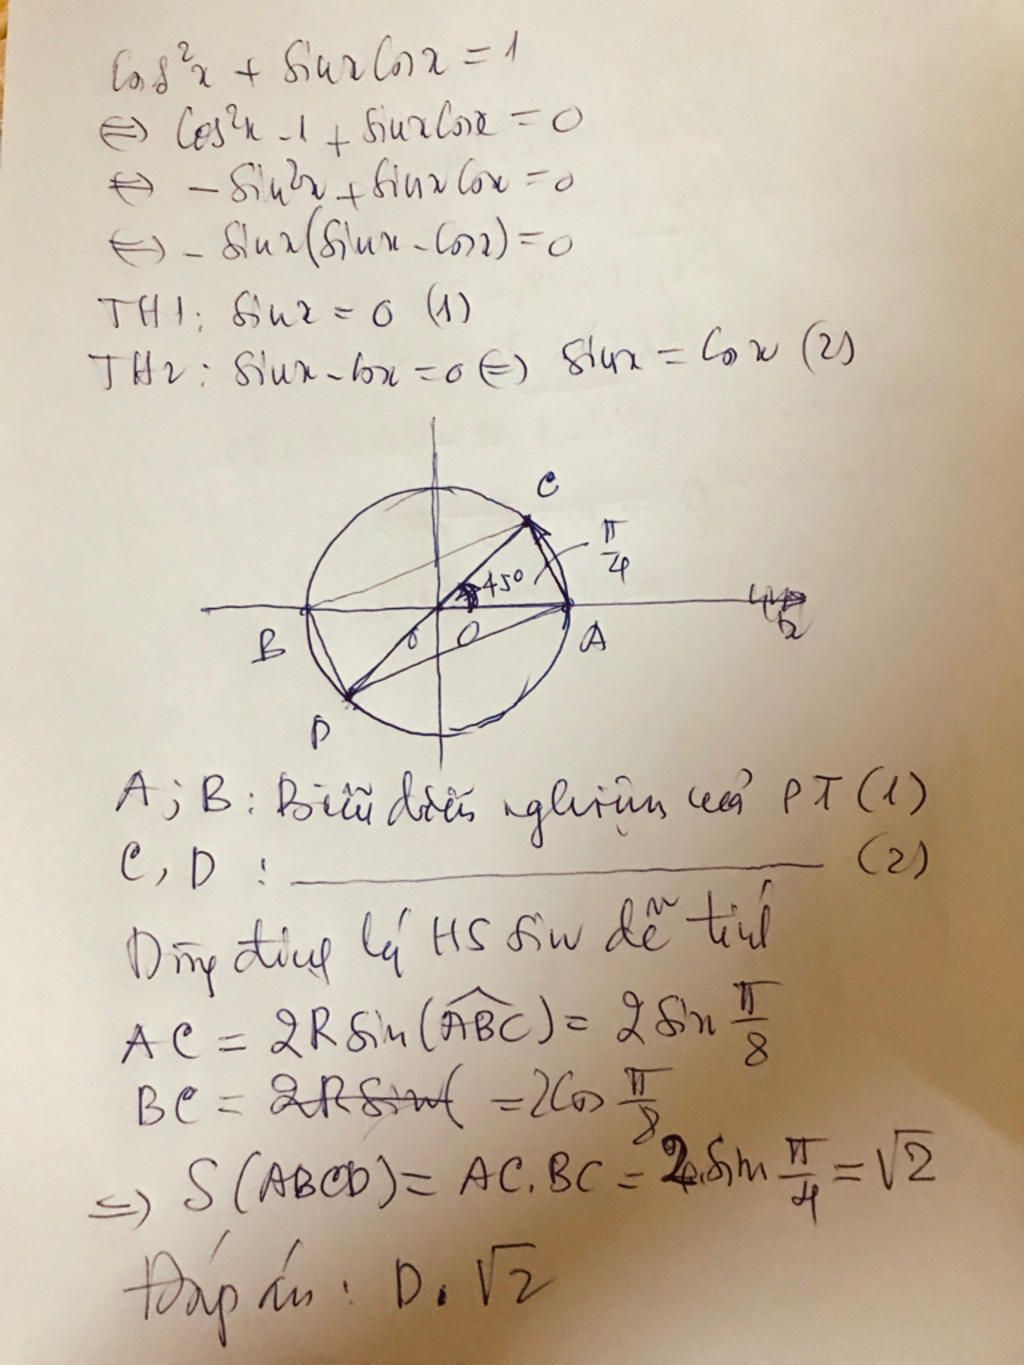 Cos²x + Sinx Cosx = 1
⇔ Cos²x - 1 + Sinx Cosx = 0
⇔ - Sin²x + Sinx Cosx = 0
⇔ - Sinx (Sinx - Cosx) = 0
TH1: Sinx = 0 (1)
TH2: Sinx - Cosx = 0 ⇔ Sinx = Cosx (2)
C
π/4
45°
B
O
A
D
A; B: Biểu diễn nghiệm của PT (1)
C, D : ——— (2)
Dùng định lý HS sin dễ tính
AC = 2R Sin(ABC) = 2 Sin π/8
BC = 2R Sin( = 2Cos π/8
=> S(ABCD) = AC.BC = 2.Sin π/4 = √2
Đáp án: D. √2